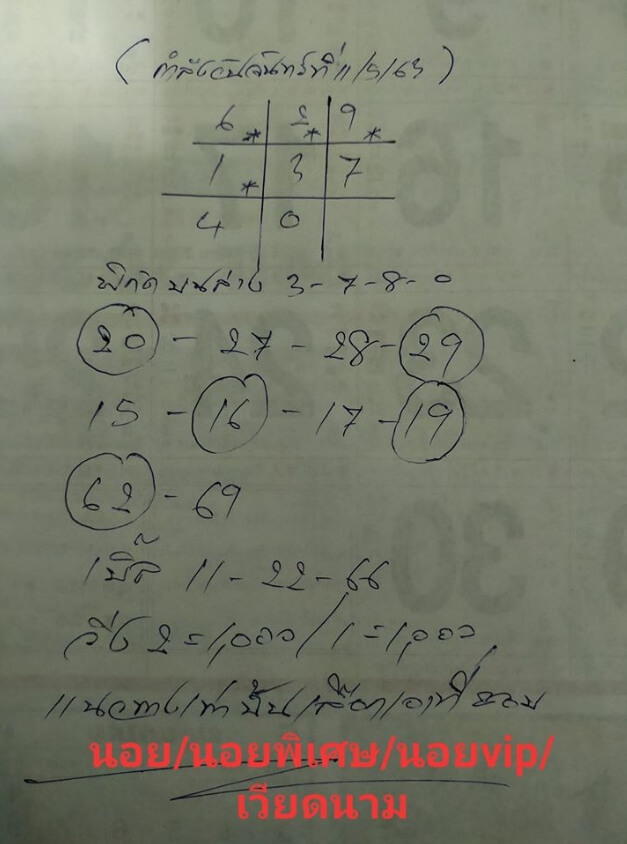 (กำลังวันจันทร์ที่ 11/5/63)
6* 2* 9*
1* 3 7
4 0
พิกัด บนล่าง 3-7-8-0
20 - 27 - 28 - 29
15 - 16 - 17 - 19
62 - 69
เบิ้ล 11 - 22 - 66
วิ่ง 2=1,000/1=1,000
แนวทางเท่านั้นเลือกเอาที่ชอบ
นอย/นอยพิเศษ/นอยvip/
เวียดนาม